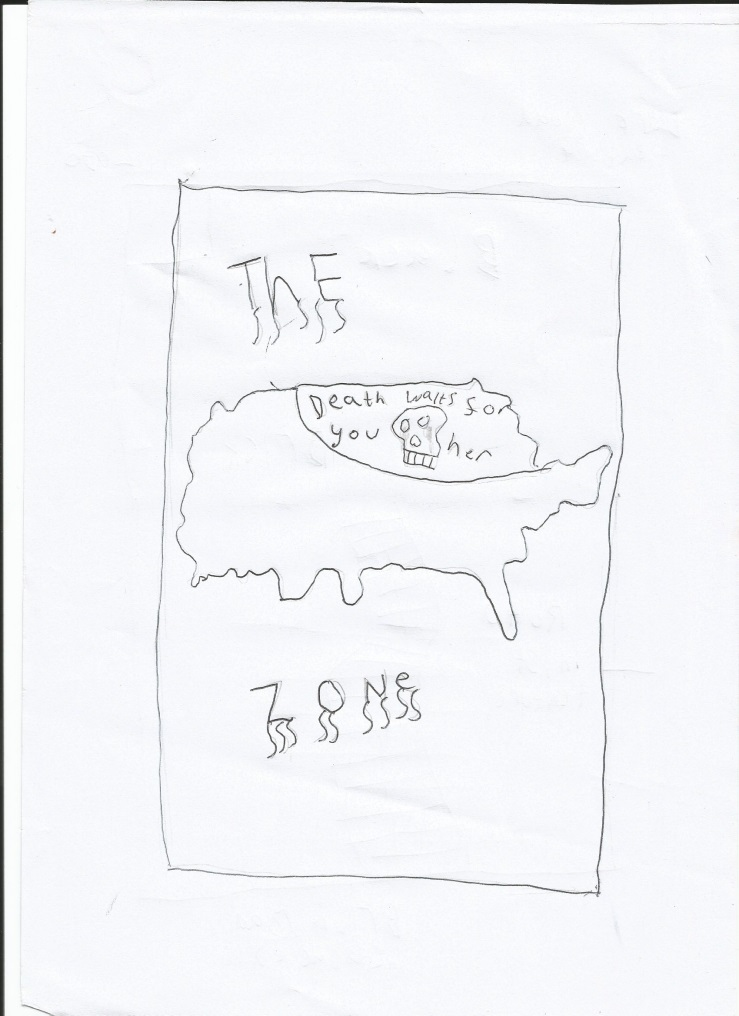 ThE
Death waits for
you her
ZONe